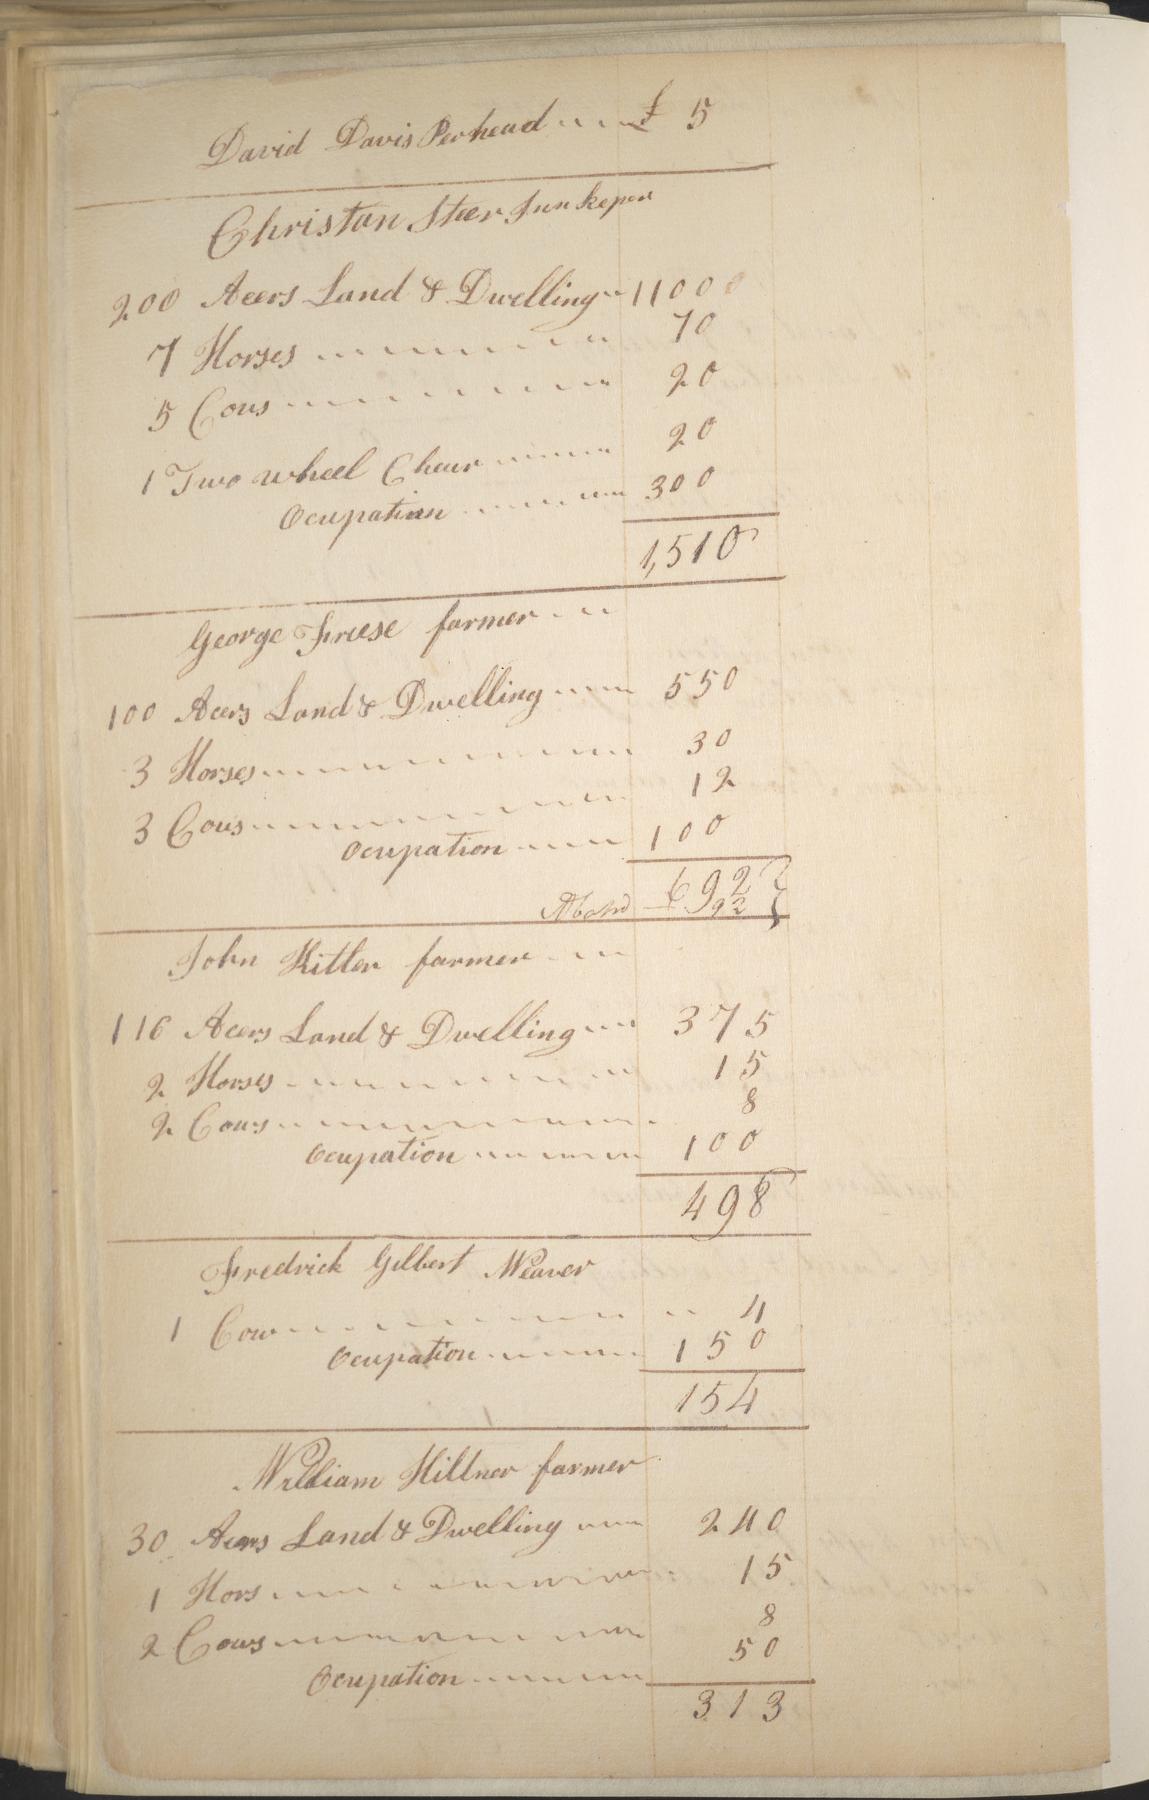 David Davis Perhead £ 5
Christon Steer Innkeper
200 Acers Land & Dwelling 1100
7 Horses 70
5 Cows 20
1 Two wheel Chear 20
Ocupation 300
1,510
George Friese farmer
100 Acers Land & Dwelling 550
3 Horses 30
3 Cows 12
Ocupation 100
692
92
John Kitler farmer
116 Acers Land & Dwelling 375
2 Horses 15
2 Cows 8
Ocupation 100
498
Fredrick Gilbert Weaver
1 Cow 4
Ocupation 150
154
William Hiltner farmer
30 Acers Land & Dwelling 240
1 Hors 15
2 Cows 8
Ocupation 50
313